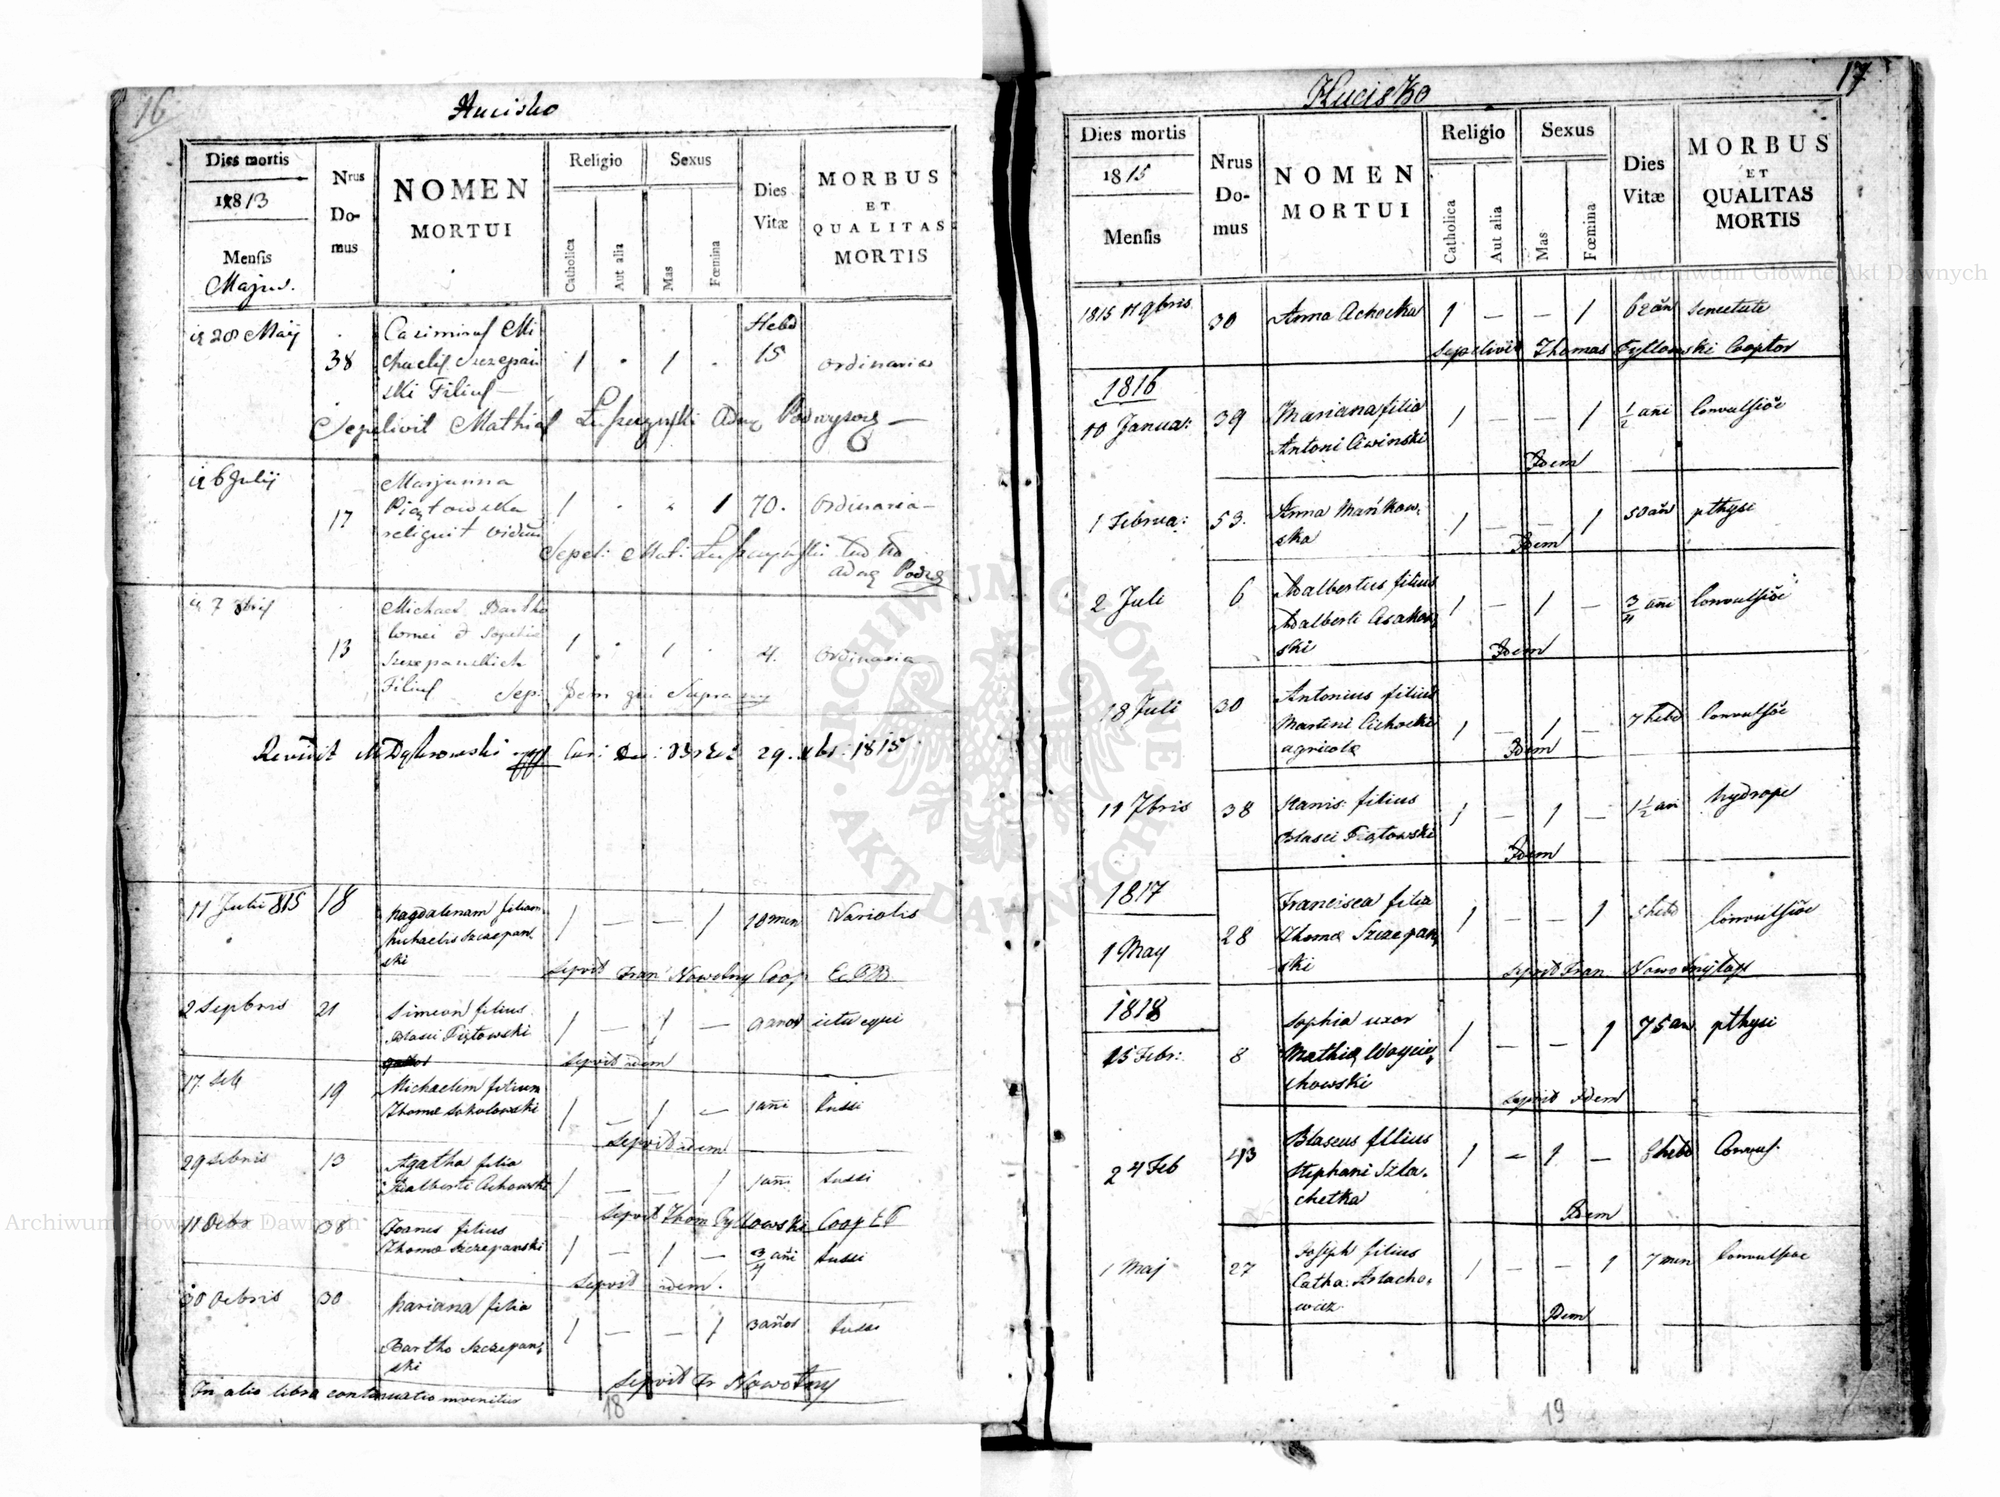 16
Hucisko
Dies mortis
1813
Mensis
Majus.
Nrus
Do-
mus
NOMEN
MORTUI
Religio
Catholica
Aut alia
Sexus
Mas
Fœmina
Dies
Vitæ
MORBUS
ET
QUALITAS
MORTIS
28 Maij
38
Casimirus Mi
chaelis Szczepań
ski Filius
1
1
Hebd
15
ordinaria
Sepelivit Mathias
6 Julij
17
Marjanna
Piątowska
reliquit viduum
1
1
70.
Ordinaria
13
Michael Bartho
lomei et Sophia
Szczepanskich
Filius
1
1
4.
Ordinaria
Sep: Idem qui Supra
Revidit
29. 1815
11 Julii 815
18
Magdalenam filiam
Michaelis Szczepan
ski
1 — — 1
10 men
Variolis
Sepvit Fran Nowotny Coop
2 Sepbris
21
Simeon filius
Blasii Piątowski
1 — 1 —
9 anor
ictu equi
Sepvit idem
17
19
Michaelem filium
Thomæ Sokolowski
1 — 1 —
1 añi
tussi
Sepvit idem
29
13
Agatha filia
Adalberti Cichowski
1 — — 1
1 añi
tussi
Sepvit Thom Cyllowski Coop
11 Octbr
38
Joanes filius
Thomæ Szczepanski
1 — 1 —
3/4 añi
tussi
Sepvit idem.
30 Octbris
30
Mariana filia
Bartho Szczepan
ski
1 — — 1
3 años
tussi
Sepvit Fr Nowotny
In alio libro continuatio invenitur
18
17
Hucisko
Dies mortis
1815
Mensis
Nrus
Do-
mus
NOMEN
MORTUI
Religio
Catholica
Aut alia
Sexus
Mas
Fœmina
Dies
Vitæ
MORBUS
ET
QUALITAS
MORTIS
1815 17 9bris
30
Anna Cichocka
1 — — 1
62 añ
senectute
Sepelivit Thomas Cyllowski Cooptor
1816
10 Janua:
39
Mariana filia
Antoni Ciwinski
1 — — 1
1/2 añi
Convulsiõe
Idem
1 Februa:
53.
Anna Mańkow
ska
1 — — 1
50 añ
pthysi
Idem
2 Juli
6
Adalbertus filius
Adalberti
ski
1 — 1 —
3/4 añi
Convulsiõe
Idem
18 Juli
30
Antonius filius
Martini Cichocki
agricolæ
1 — 1 —
7 hebd
Convulsiõe
Idem
11 7bris
38
filius
Blasii Piątowski
1 — 1 —
1 1/2 an
hydrope
Idem
1817
1 May
28
Francisca filia
Thomæ Szczepan
ski
1 — — 1
5 hebd
Convulsiõe
Sepvit Fran Nowotny
1818
15 Febr:
8
Sophia uxor
Mathiæ Woycie
chowski
1 — — 1
75 an
pthysi
Sepvit Idem
24 Feb
43
Blaseus filius
Stephani Szla-
chetka
1 — 1 —
8 hebd
Convul.
Idem
1 Maj
27
Joseph filius
Catha:
1 — — 1
7 men
Convulsioe
Idem
19
ARCHIWUM GŁÓWNE AKT DAWNYCH
Archiwum Główne Akt Dawnych
Archiwum Główne Akt Dawnych